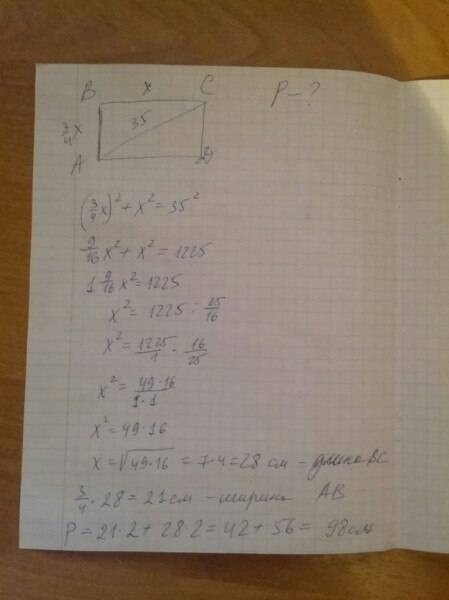 B x C P - ?
3/4x 35
A D
(3/4x)² + x² = 35²
9/16x² + x² = 1225
1 9/16x² = 1225
x² = 1225 : 25/16
x² = 1225/1 · 16/25
x² = 49·16/1·1
x² = 49·16
x = √49·16 = 7·4 = 28 см - длина BC
3/4 · 28 = 21 см - ширина AB
P = 21·2 + 28·2 = 42 + 56 = 98 см